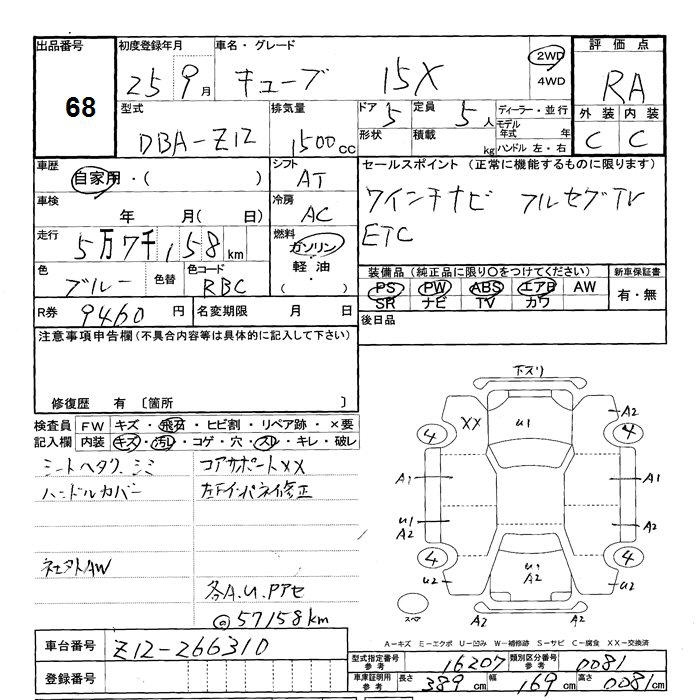 出品番号
68
初度登録年月
25 9月
車名・グレード
キューブ 15X
2WD
4WD
評価点
RA
外装 内装
C C
型式
DBA-Z12
排気量
1500cc
ドア 5
定員 5人
形状
積載 kg
ディーラー・並行
モデル年式 年
ハンドル 左・右
車歴
自家用・( )
シフト
AT
車検
年 月( 日)
冷房
AC
走行
5万7千158km
燃料
ガソリン・
軽油・
色
ブルー
色替
色コード
RBC
R券 9460円
名変期限 月 日
セールスポイント(正常に機能するものに限ります)
ワインチナビ フルセグTV
ETC
装備品(純正品に限り○をつけてください)
PS PW ABS エアB AW
SR ナビ TV カワ
新車保証書
有・無
後日品
注意事項申告欄(不具合内容等は具体的に記入して下さい)
修復歴 有 〔箇所 〕
検査員記入欄
FW キズ・飛石・ヒビ割・リペア跡・×要
内装 キズ・汚レ・コゲ・穴・スレ・キレ・破レ
シートヘタリ、シミ
ハンドルカバー
社外AW
コアサポートXX
左Fインパネイ修正
各A.U.Pアセ
@57158km
下スリ
XX
U1
A2
4
4
A1
A1
U1
A2
A2
4
4
U2
U1
A2
U2
スペア
A2
A2
A-キズ E-エクボ U-凹み W-補修跡 S-サビ C-腐食 XX-交換済
車台番号
Z12-266310
登録番号
型式指定番号参考 16207
類別区分番号参考 0081
車庫証明用参考
長さ 389cm
幅 169cm
高さ 0081cm